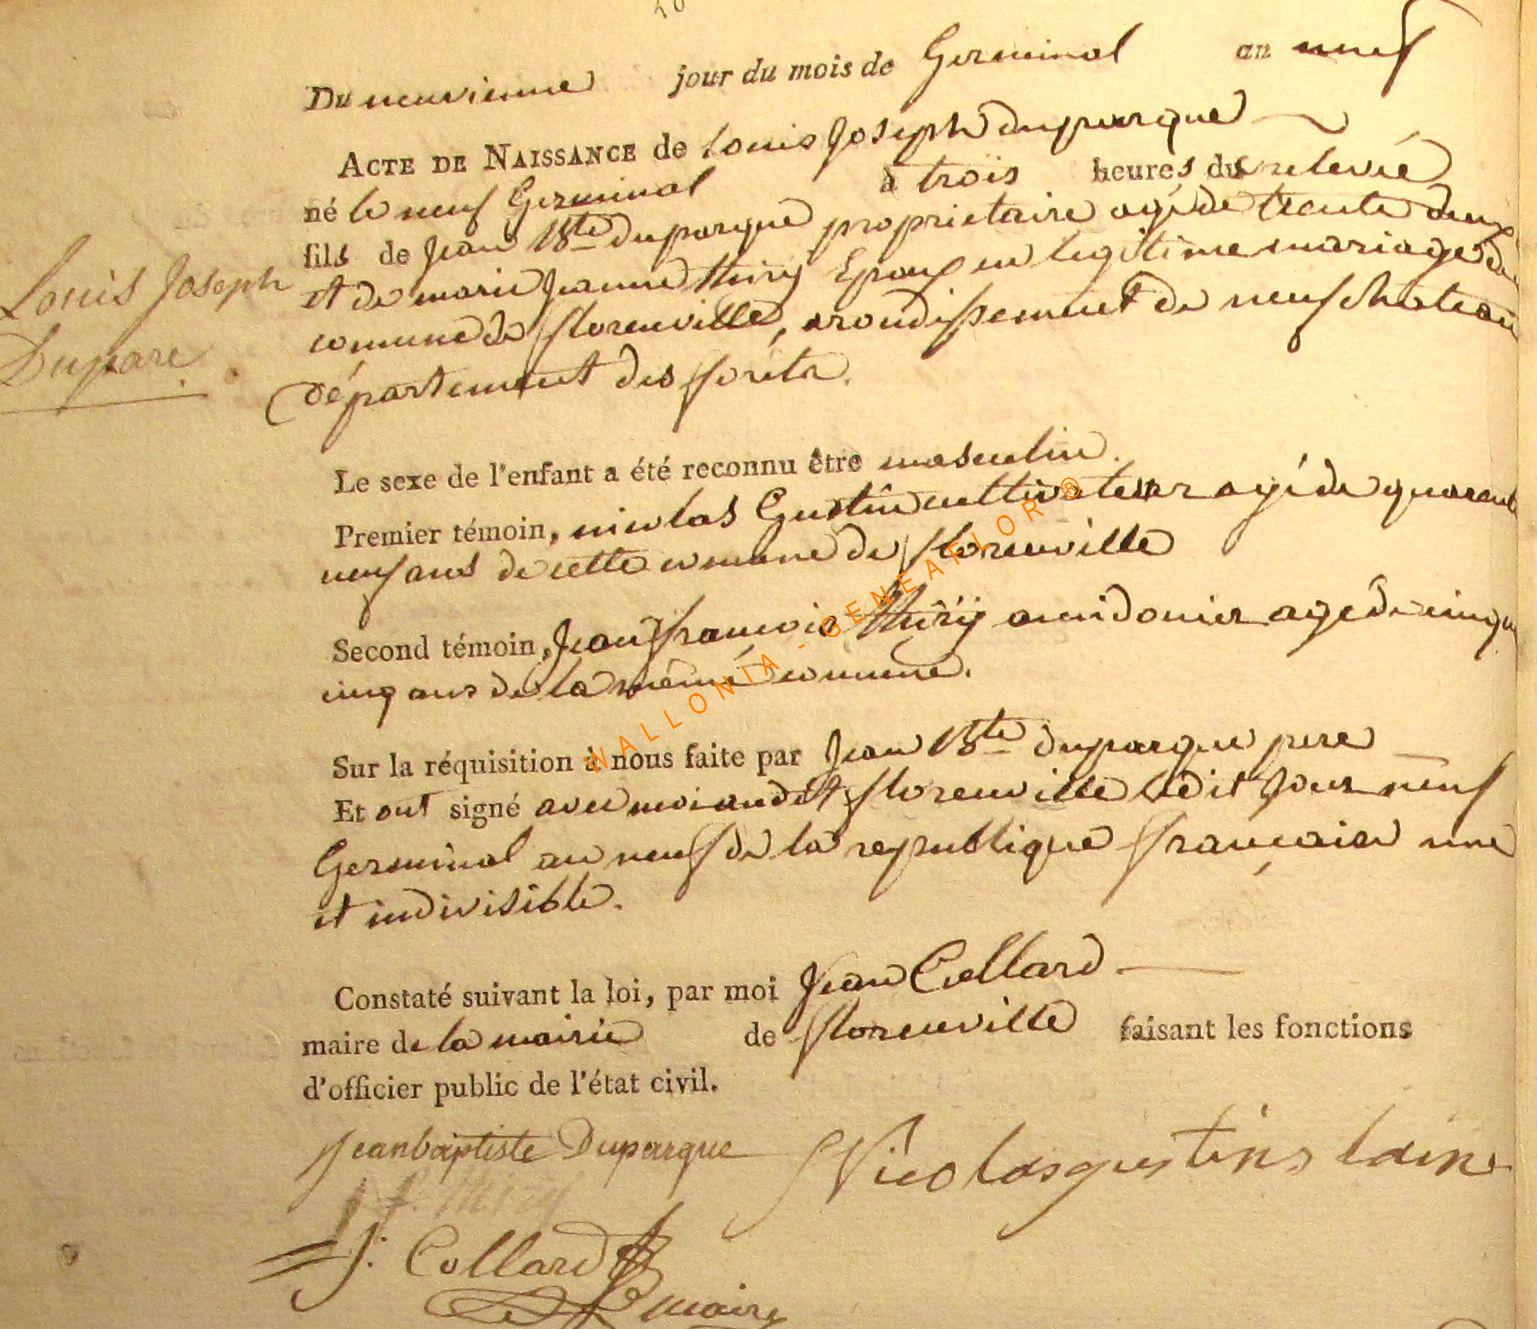 Du neuvienne jour du mois de Germinal an neuf
ACTE DE NAISSANCE de Louis Joseph duparque
né le neuf Germinal à trois heures du relevée
fils de Jean Bte duparque proprietaire agé de trente deux
et de marie Jeanne thiry Epoux en legitime mariage de
comune de florenville, arondissement de neufchateau
département des forêts.
Louis Joseph
Duparc
Le sexe de l'enfant a été reconnu être masculin.
Premier témoin, nicolas Gustin cultivateur agé de quarant
neuf ans de cette comune de florenville
Second témoin, Jean françois thiry amidonier agé de cinqu
cinq ans de la même comune.
Sur la réquisition à nous faite par Jean Bte duparque pere
Et ont signé avec moi audit florenville ledit jour neuf
Germinal an neuf de la republique française une
et indivisible.
Constaté suivant la loi, par moi Jean Collard
maire de la mairie de florenville faisant les fonctions
d'officier public de l'état civil.
Jeanbaptiste Duparque Nicolas gustins laine
J f thiry
J: Collard
maire
WALLONIA - GENEAFLOR ®